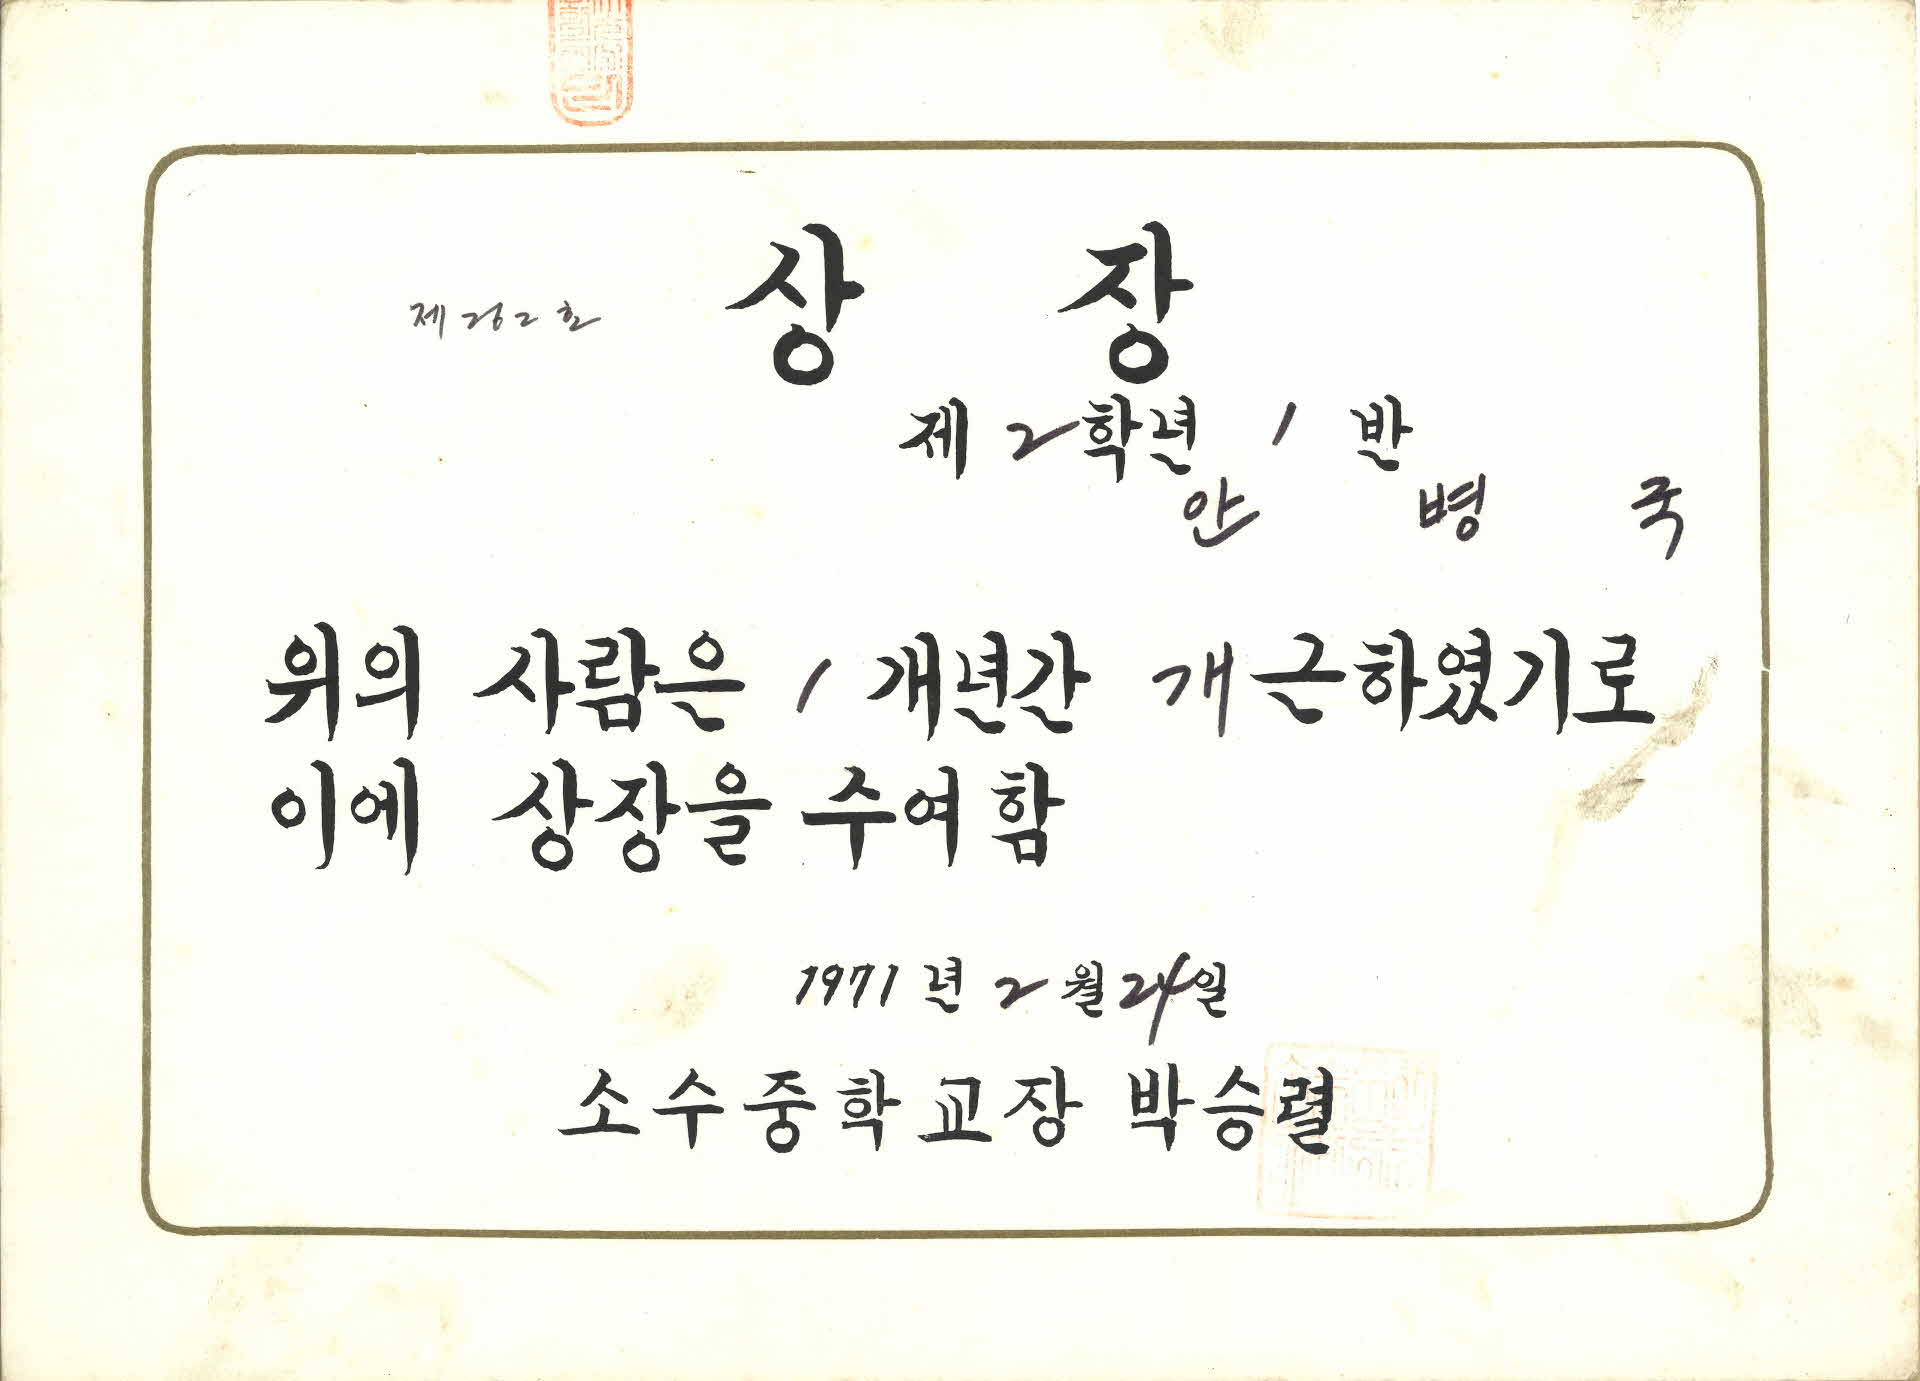 상 장
제 262 호
제 2 학년 1 반
안 병 국
위의 사람은 1 개년간 개근하였기로
이에 상장을 수여함
1971 년 2 월 24 일
소수중학교장 박승렬